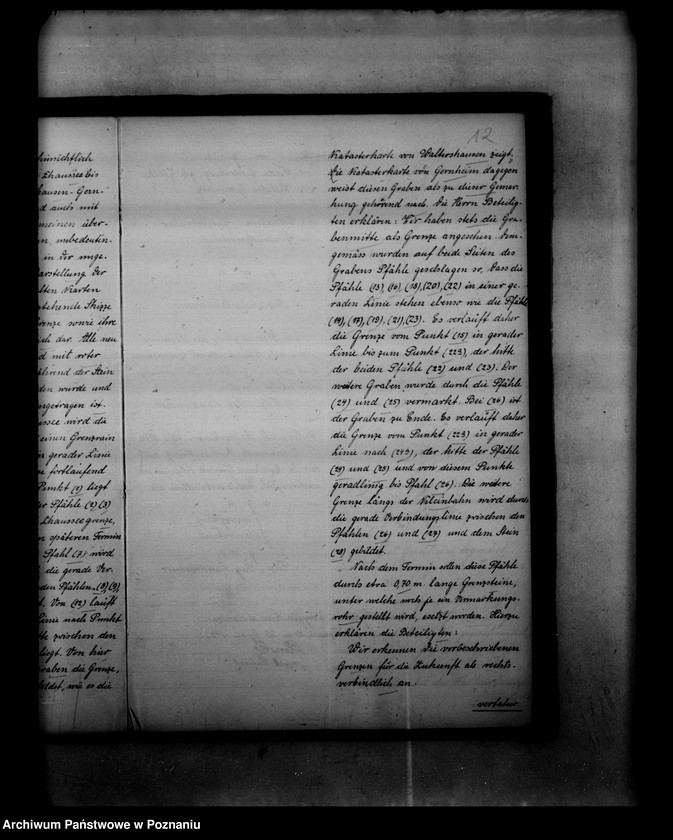 hinsichtlich
Chaussee bis
hausen-Gern-
d auch mit
meinen über-
n, unbedeuten-
in der unge-
arstellung der
lten Karten
stehende Skizze
renze sowie ihre
ich dar. Alle neu
d mit roter
ährend der Stein
den wurde und
ngetragen ist.
ussee wird die
einen Grenzrain
n gerader Linie
ze fortlaufend
Punkt (1) liegt
er Pfähle (2)(3)
Chausseegrenze,
m späteren Termin
Pfahl (7) wird
die gerade Ver-
den Pfählen (8)(9),
t. Von (12) läuft
Linie nach Punkt
tte zwischen den
liegt. Von hier
raben die Grenze,
ildet, wie es die
12
Katasterkarte von Waltershausen zeigt.
Die Katasterkarte von Gernheim dagegen
weist diesen Graben als zu dieser Gemar-
kung gehörend nach. Die Herrn Beteilig-
ten erklären: Wir haben stets die Gra-
benmitte als Grenze angesehen. Dem-
gemäss wurden auf beide Seiten des
Grabens Pfähle geschlagen so, dass die
Pfähle (13), (16), (18), (20), (22) in einer ge-
raden Linie stehen ebenso wie die Pfähle
(14), (17), (19), (21), (23). Es verläuft daher
die Grenze vom Punkt (15) in gerader
Linie bis zum Punkt (223), der Mitte
der beiden Pfähle (22) und (23). Der
weitere Graben wurde durch die Pfähle
(24) und (25) vermarkt. Bei (26) ist
der Graben zu Ende. Es verläuft daher
die Grenze vom Punkt (223) in gerader
Linie nach (245), der Mitte der Pfähle
(24) und (25) und von diesem Punkte
geradlinig bis Pfahl (26). Die weitere
Grenze längs der Kleinbahn wird durch
die gerade Verbindungslinie zwischen den
Pfählen (26) und (27) und dem Stein
(28) gebildet.
Nach dem Termin sollen diese Pfähle
durch etra 0,70 m lange Grenzsteine,
unter welche noch je ein Vermarkungs-
rohr gestellt wird, ersetzt werden. Hierzu
erklären die Beteiligten:
Wir erkennen die vorbeschriebenen
Grenzen für die Zukunft als rechts-
verbindlich an.
vertatur
Archiwum Państwowe w Poznaniu